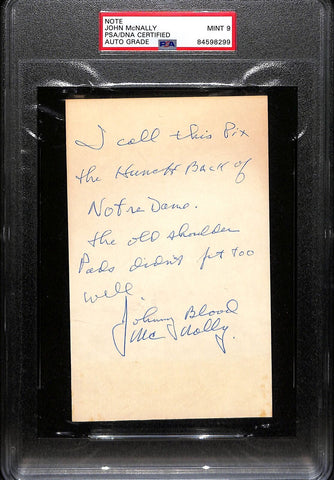 NOTE
JOHN McNALLY
PSA/DNA CERTIFIED
AUTO GRADE
PSA
MINT 9
84598299
I call this Pix
the Hunch Back of
Notre Dame.
the old shoulder
Pads didn't fit too
well
Johnny Blood
McNally.